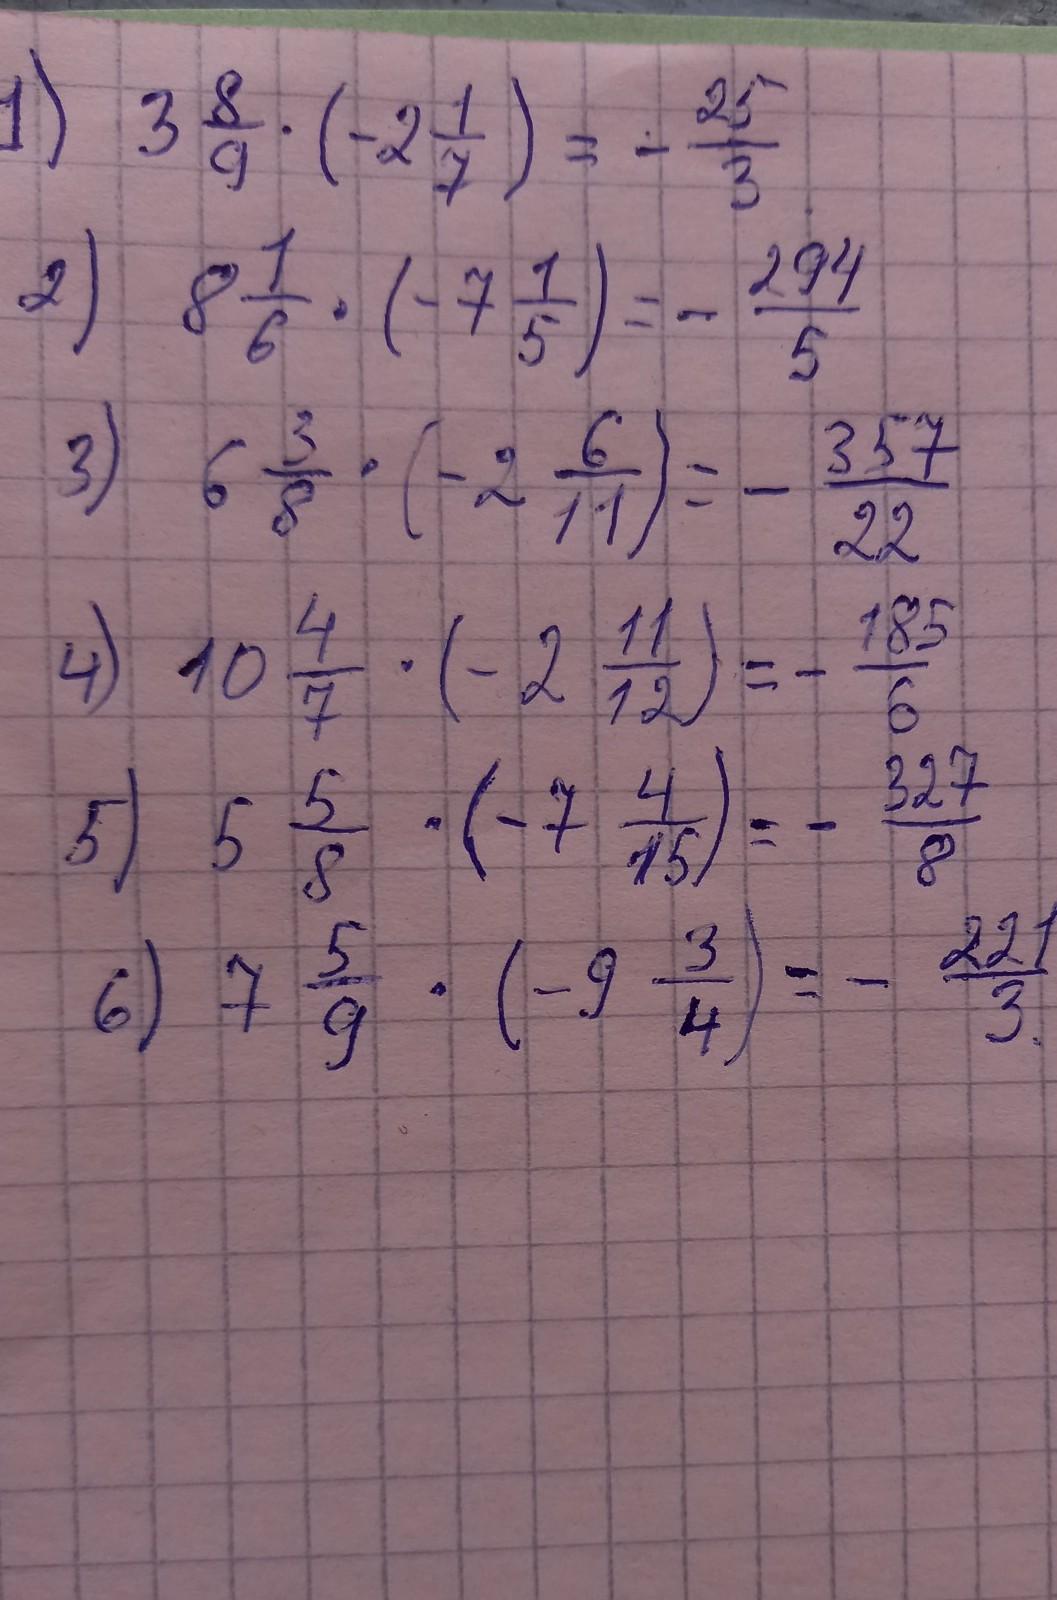 1) 3 8/9 · (-2 1/7) = - 25/3
2) 8 1/6 · (-7 1/5) = - 294/5
3) 6 3/8 · (-2 6/11) = - 357/22
4) 10 4/7 · (-2 11/12) = - 185/6
5) 5 5/8 · (-7 4/15) = - 327/8
6) 7 5/9 · (-9 3/4) = - 221/3.